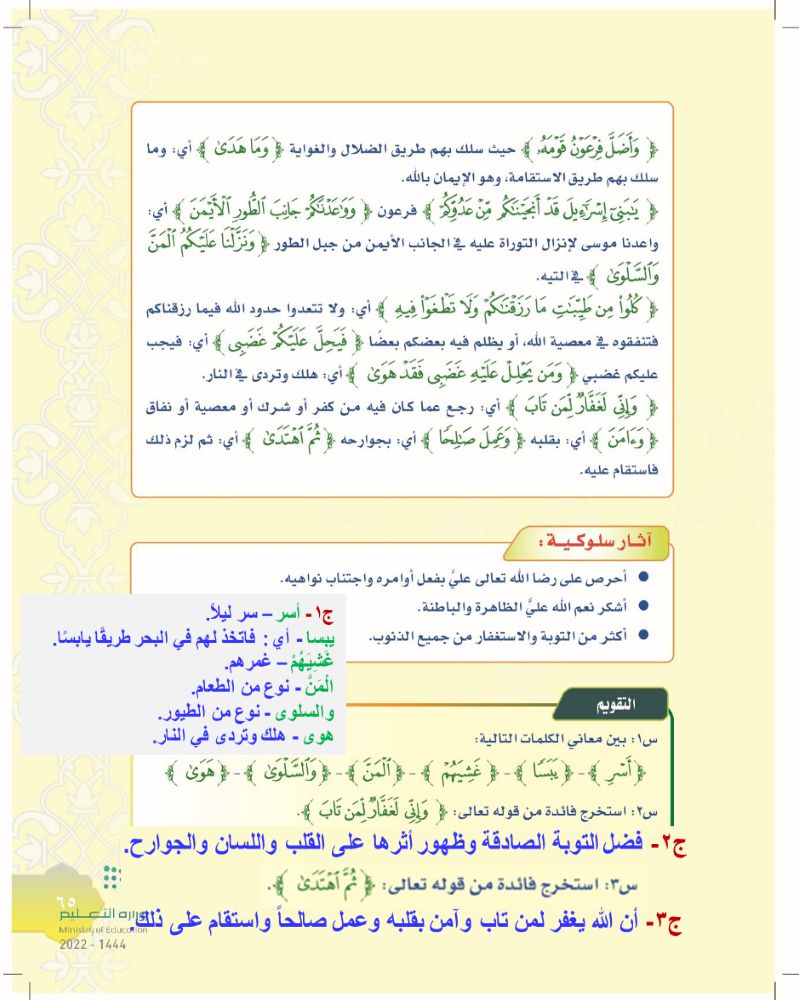 ﴿ وَأَضَلَّ فِرْعَوْنُ قَوْمَهُۥ ﴾ حيث سلك بهم طريق الضلال والغواية ﴿ وَمَا هَدَىٰ ﴾ أي: وما
سلك بهم طريق الاستقامة، وهو الإيمان بالله.
﴿ يَٰبَنِيٓ إِسْرَٰٓءِيلَ قَدْ أَنجَيْنَٰكُم مِّنْ عَدُوِّكُمْ ﴾ فرعون ﴿ وَوَٰعَدْنَٰكُمْ جَانِبَ ٱلطُّورِ ٱلْأَيْمَنَ ﴾ أي:
واعدنا موسى لإنزال التوراة عليه في الجانب الأيمن من جبل الطور ﴿ وَنَزَّلْنَا عَلَيْكُمُ ٱلْمَنَّ
وَٱلسَّلْوَىٰ ﴾ في التيه.
﴿ كُلُوا۟ مِن طَيِّبَٰتِ مَا رَزَقْنَٰكُمْ وَلَا تَطْغَوْا۟ فِيهِ ﴾ أي: ولا تتعدوا حدود الله فيما رزقناكم
فتنفقوه في معصية الله، أو يظلم فيه بعضكم بعضًا ﴿ فَيَحِلَّ عَلَيْكُمْ غَضَبِى ﴾ أي: فيجب
عليكم غضبي ﴿ وَمَن يَحْلِلْ عَلَيْهِ غَضَبِى فَقَدْ هَوَىٰ ﴾ أي: هلك وتردى في النار.
﴿ وَإِنِّى لَغَفَّارٌ لِّمَن تَابَ ﴾ أي: رجع عما كان فيه من كفر أو شرك أو معصية أو نفاق
﴿ وَءَامَنَ ﴾ أي: بقلبه ﴿ وَعَمِلَ صَٰلِحًا ﴾ أي: بجوارحه ﴿ ثُمَّ ٱهْتَدَىٰ ﴾ أي: ثم لزم ذلك
فاستقام عليه.
آثار سلوكية :
● أحرص على رضا الله تعالى عليَّ بفعل أوامره واجتناب نواهيه.
● أشكر نعم الله عليَّ الظاهرة والباطنة.
● أكثر من التوبة والاستغفار من جميع الذنوب.
ج١- أسر – سر ليلاً.
يبسا - أي : فاتخذ لهم في البحر طريقًا يابسًا.
غَشِيَهُمْ – غمرهم.
الْمَنَّ - نوع من الطعام.
والسلوى - نوع من الطيور.
هوى - هلك وتردى في النار.
التقويم
س١: بين معاني الكلمات التالية:
﴿ أَسْرِ ﴾ - ﴿ يَبَسًا ﴾ - ﴿ غَشِيَهُمْ ﴾ - ﴿ ٱلْمَنَّ ﴾ - ﴿ وَٱلسَّلْوَىٰ ﴾ - ﴿ هَوَىٰ ﴾
س٢: استخرج فائدة من قوله تعالى: ﴿ وَإِنِّى لَغَفَّارٌ لِّمَن تَابَ ﴾.
ج٢- فضل التوبة الصادقة وظهور أثرها على القلب واللسان والجوارح.
س٣: استخرج فائدة من قوله تعالى: ﴿ ثُمَّ ٱهْتَدَىٰ ﴾.
ج٣- أن الله يغفر لمن تاب وآمن بقلبه وعمل صالحاً واستقام على ذلك.
٦٥
وزارة التعليم
Ministry of Education
2022 - 1444